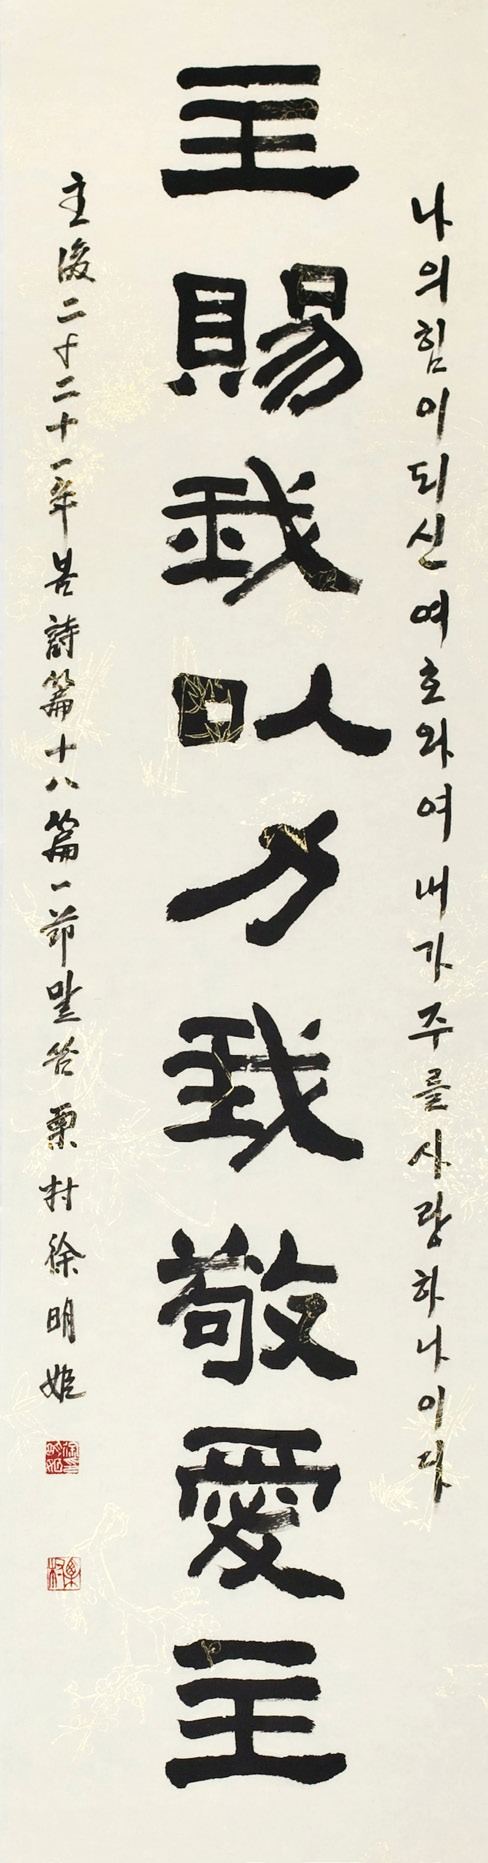 나의힘이되신여호와여내가주를사랑하나이다
主賜我以力我敬愛主
主後二千二十一年詩篇十八篇一節栗村徐明姬